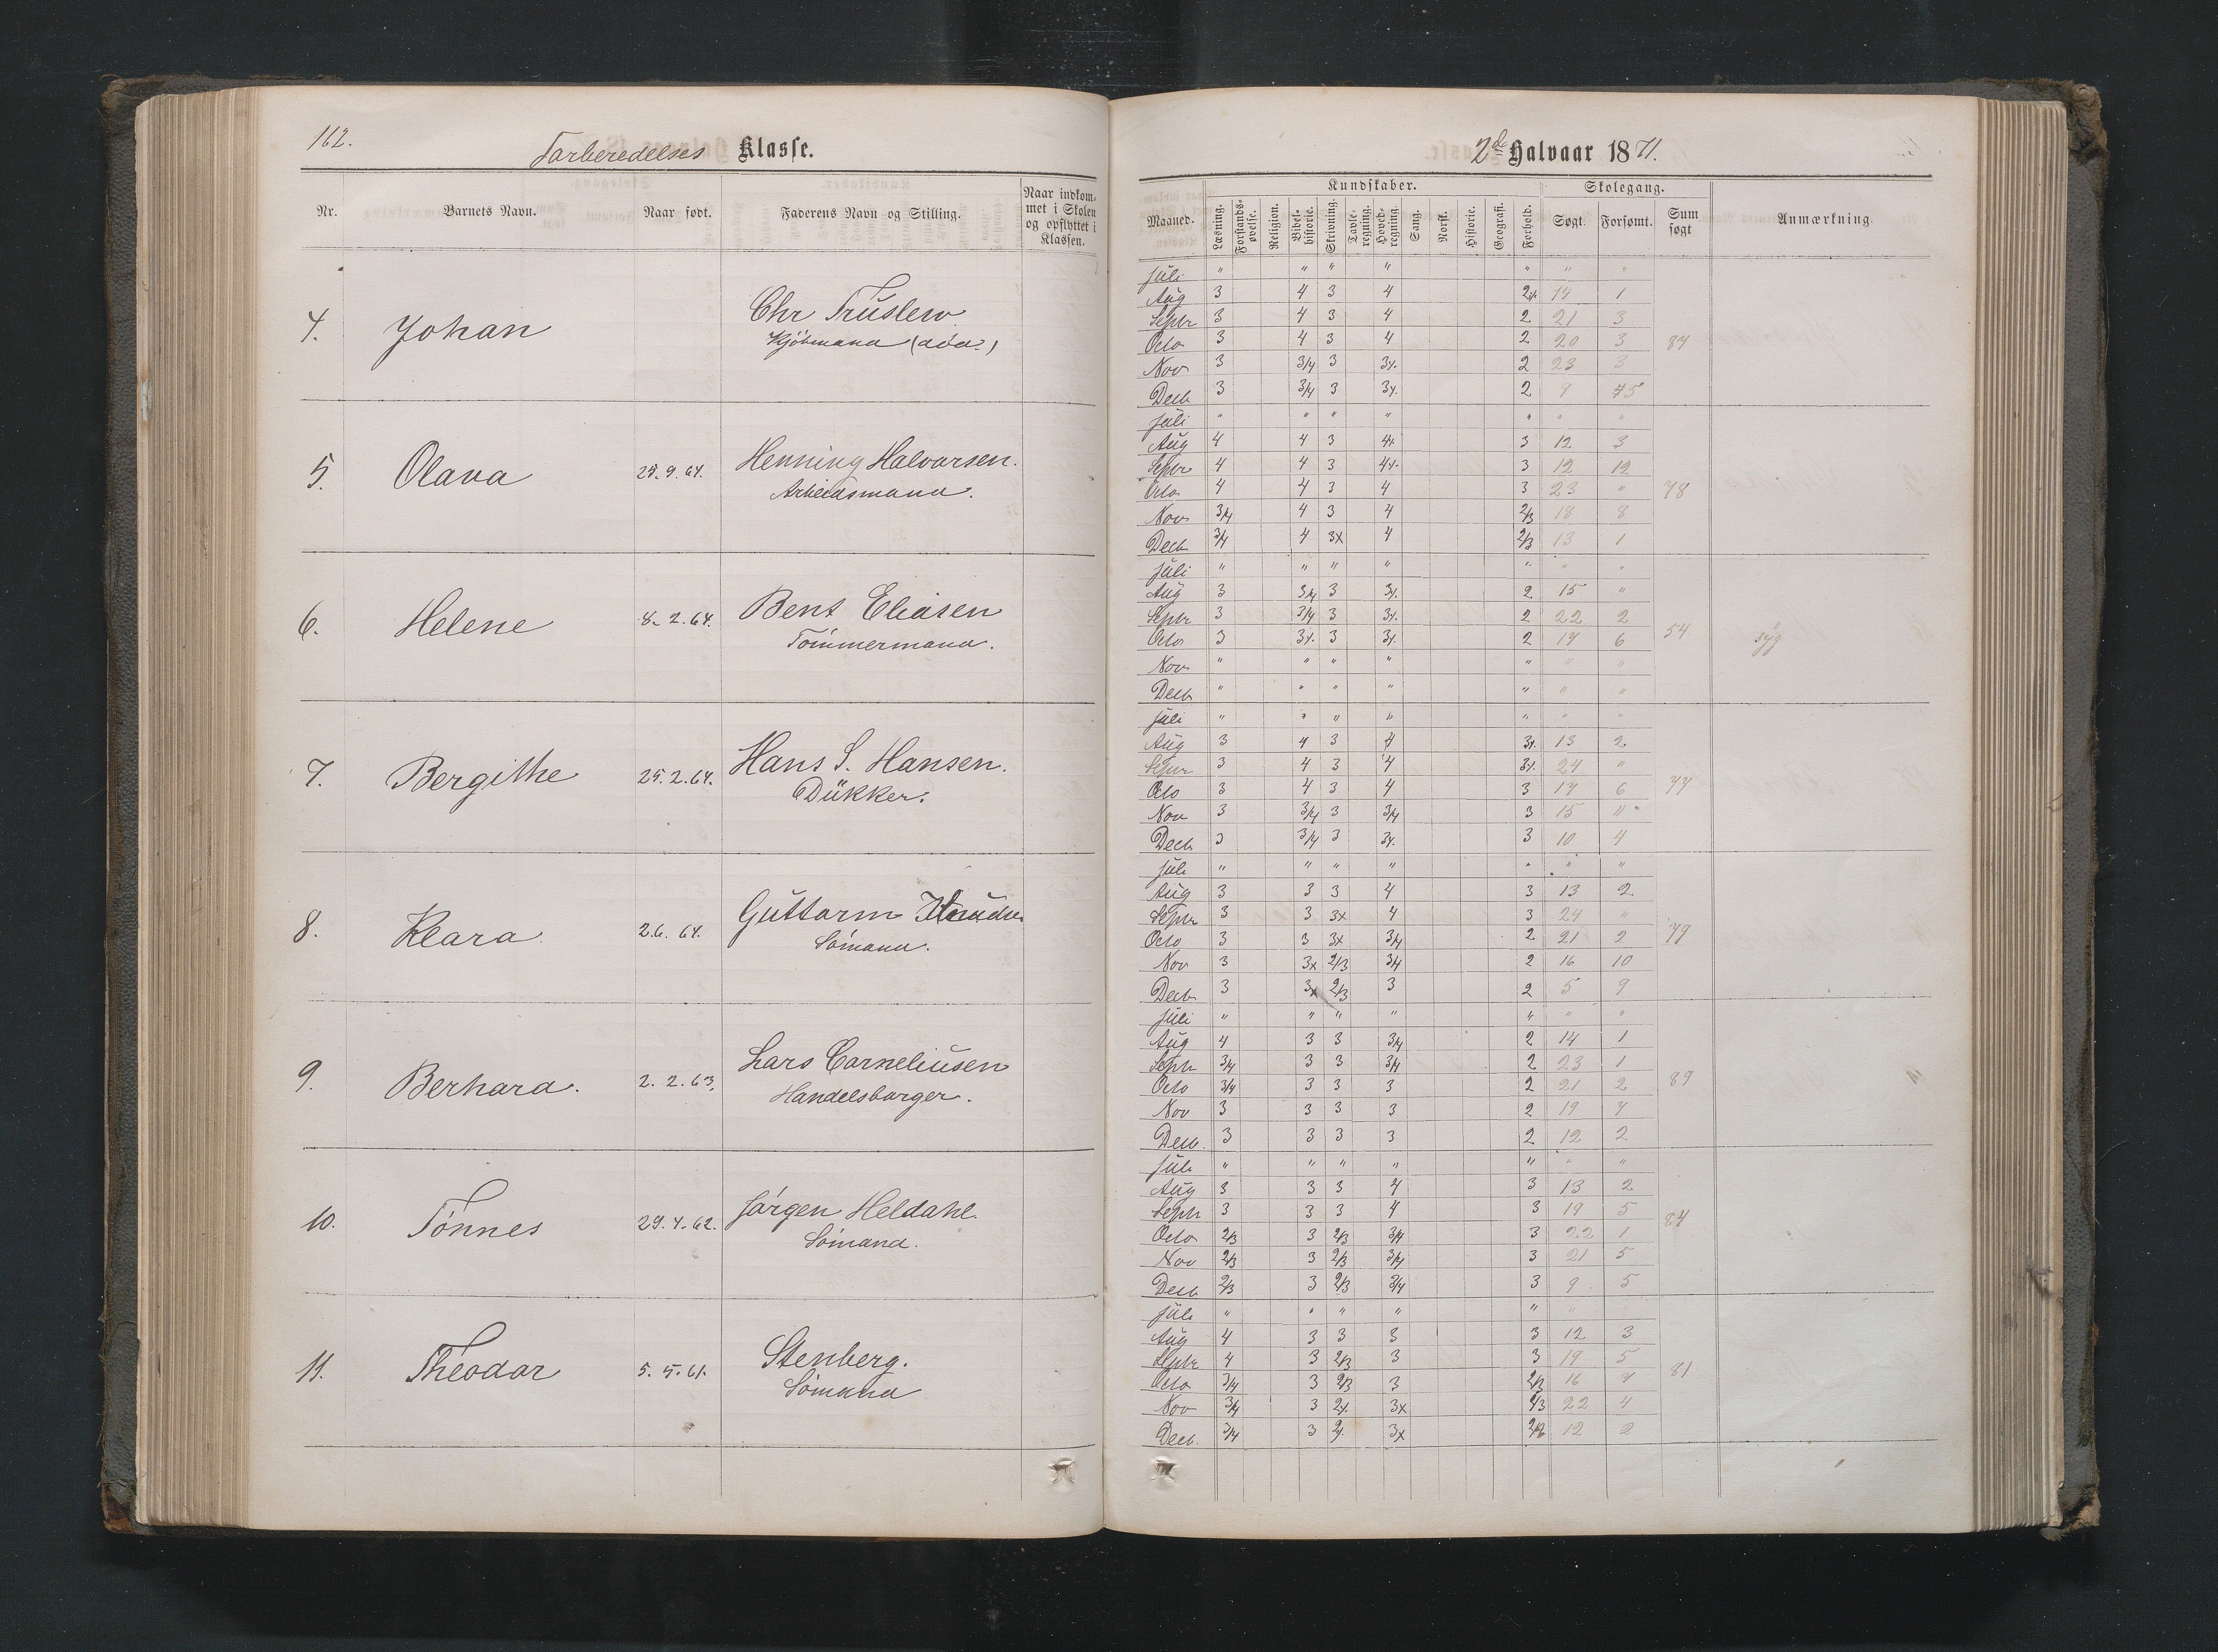 162.
Forberedelses Klasse.
Nr. Barnets Navn. Naar født. Faderens Navn og Stilling. Naar indkommet i Skolen og opflyttet i Klassen.
4. Johan Chr Truslew
Kjöbmand (död)
5. Olava 29.9.64. Henning Halvorsen.
Arbeidsmand.
6. Helene 8.2.64. Bent Eliasen
Tömmermand.
7. Bergithe 25.2.64. Hans S. Hansen.
Dükker.
8. Klara 2.6.64. Guttorm Knudsen
Sömand.
9. Berhard. 2.2.63. Lars Corneliusen
Handelsborger.
10. Tönnes 29.4.62. Jörgen Heldahl.
Sömand.
11. Theodor 5.5.61. Stenberg.
Sömand
2de Halvaar 1871.
Kundskaber. Skolegang.
Maaned. Læsning. Forstands-øvelse. Religion. Bibel-historie. Skrivning. Tavle-regning. Hoved-regning. Sang. Norsk. Historie. Geografi. Forhold. Søgt. Forsømt. Sum søgt Anmærkning.
Juli " " " " " " "
Aug 3 4 3 4 14 1
Septr 3 4 3 4 2 21 3
Octo 3 4 3 4 2 20 3 87
Nov 3 3/4 3 2 23 3
Decb 3 3/4 3 2 9
Juli " " " " " " "
Aug 4 4 3 3 12 3
Septr 4 4 3 3 12 12
Octo 4 4 3 4 3 23 " 78
Nov 3/4 4 3 4 2/3 18 8
Decb 3/4 4 3x 4 2/3 13 1
Juli " " " " " " "
Aug 3 3/4 3 2 15 "
Septr 3 3/4 3 2 22 2
Octo 3 3 2 17 6 54 syg
Nov " " " " " " "
Decb " " " " " " "
Juli " " " " " " "
Aug 3 4 3 4 13 2
Septr 3 4 3 4 24 "
Octo 3 4 3 4 3 6 77
Nov 3 3/4 3 3/4 3 15 "
Decb 3 3/4 3 3 10 4
Juli " " " " " " "
Aug 3 3 3 4 3 13 2
Septr 3 3 3x 4 3 24 "
Octo 3 3 3x 3/4 2 21 2 79
Nov 3 3x 2/3 3/4 2 16 10
Decb 3 3x 2/3 3 2 5 9
Juli " " " " " " "
Aug 4 3 3 3/4 2 14 1
Septr 3/4 3 3 3/4 2 23 1
Octo 3/4 3 3 3 2 21 2 89
Nov 3 3 3 3 2 19 7
Decb. 3 3 3 3 2 12 2
Juli " " " " " " "
Aug 3 3 3 4 3 13 2
Septr 3 3 3 4 3 19 5
Octo 2/3 3 2/3 3/4 3 22 1 84
Nov 2/3 3 2/3 3/4 3 21 5
Decb 2/3 3 2/3 3/4 3 9 5
Juli " " " " " "
Aug 4 3 3 3 3 12 3
Septr 4 3 2/3 3 3 19 5
Octo 3/4 3 2/3 3 2/3 16 81
Nov 3/4 3 3x 2/3 22 4
Decb. 3/4 3 3x 12 2